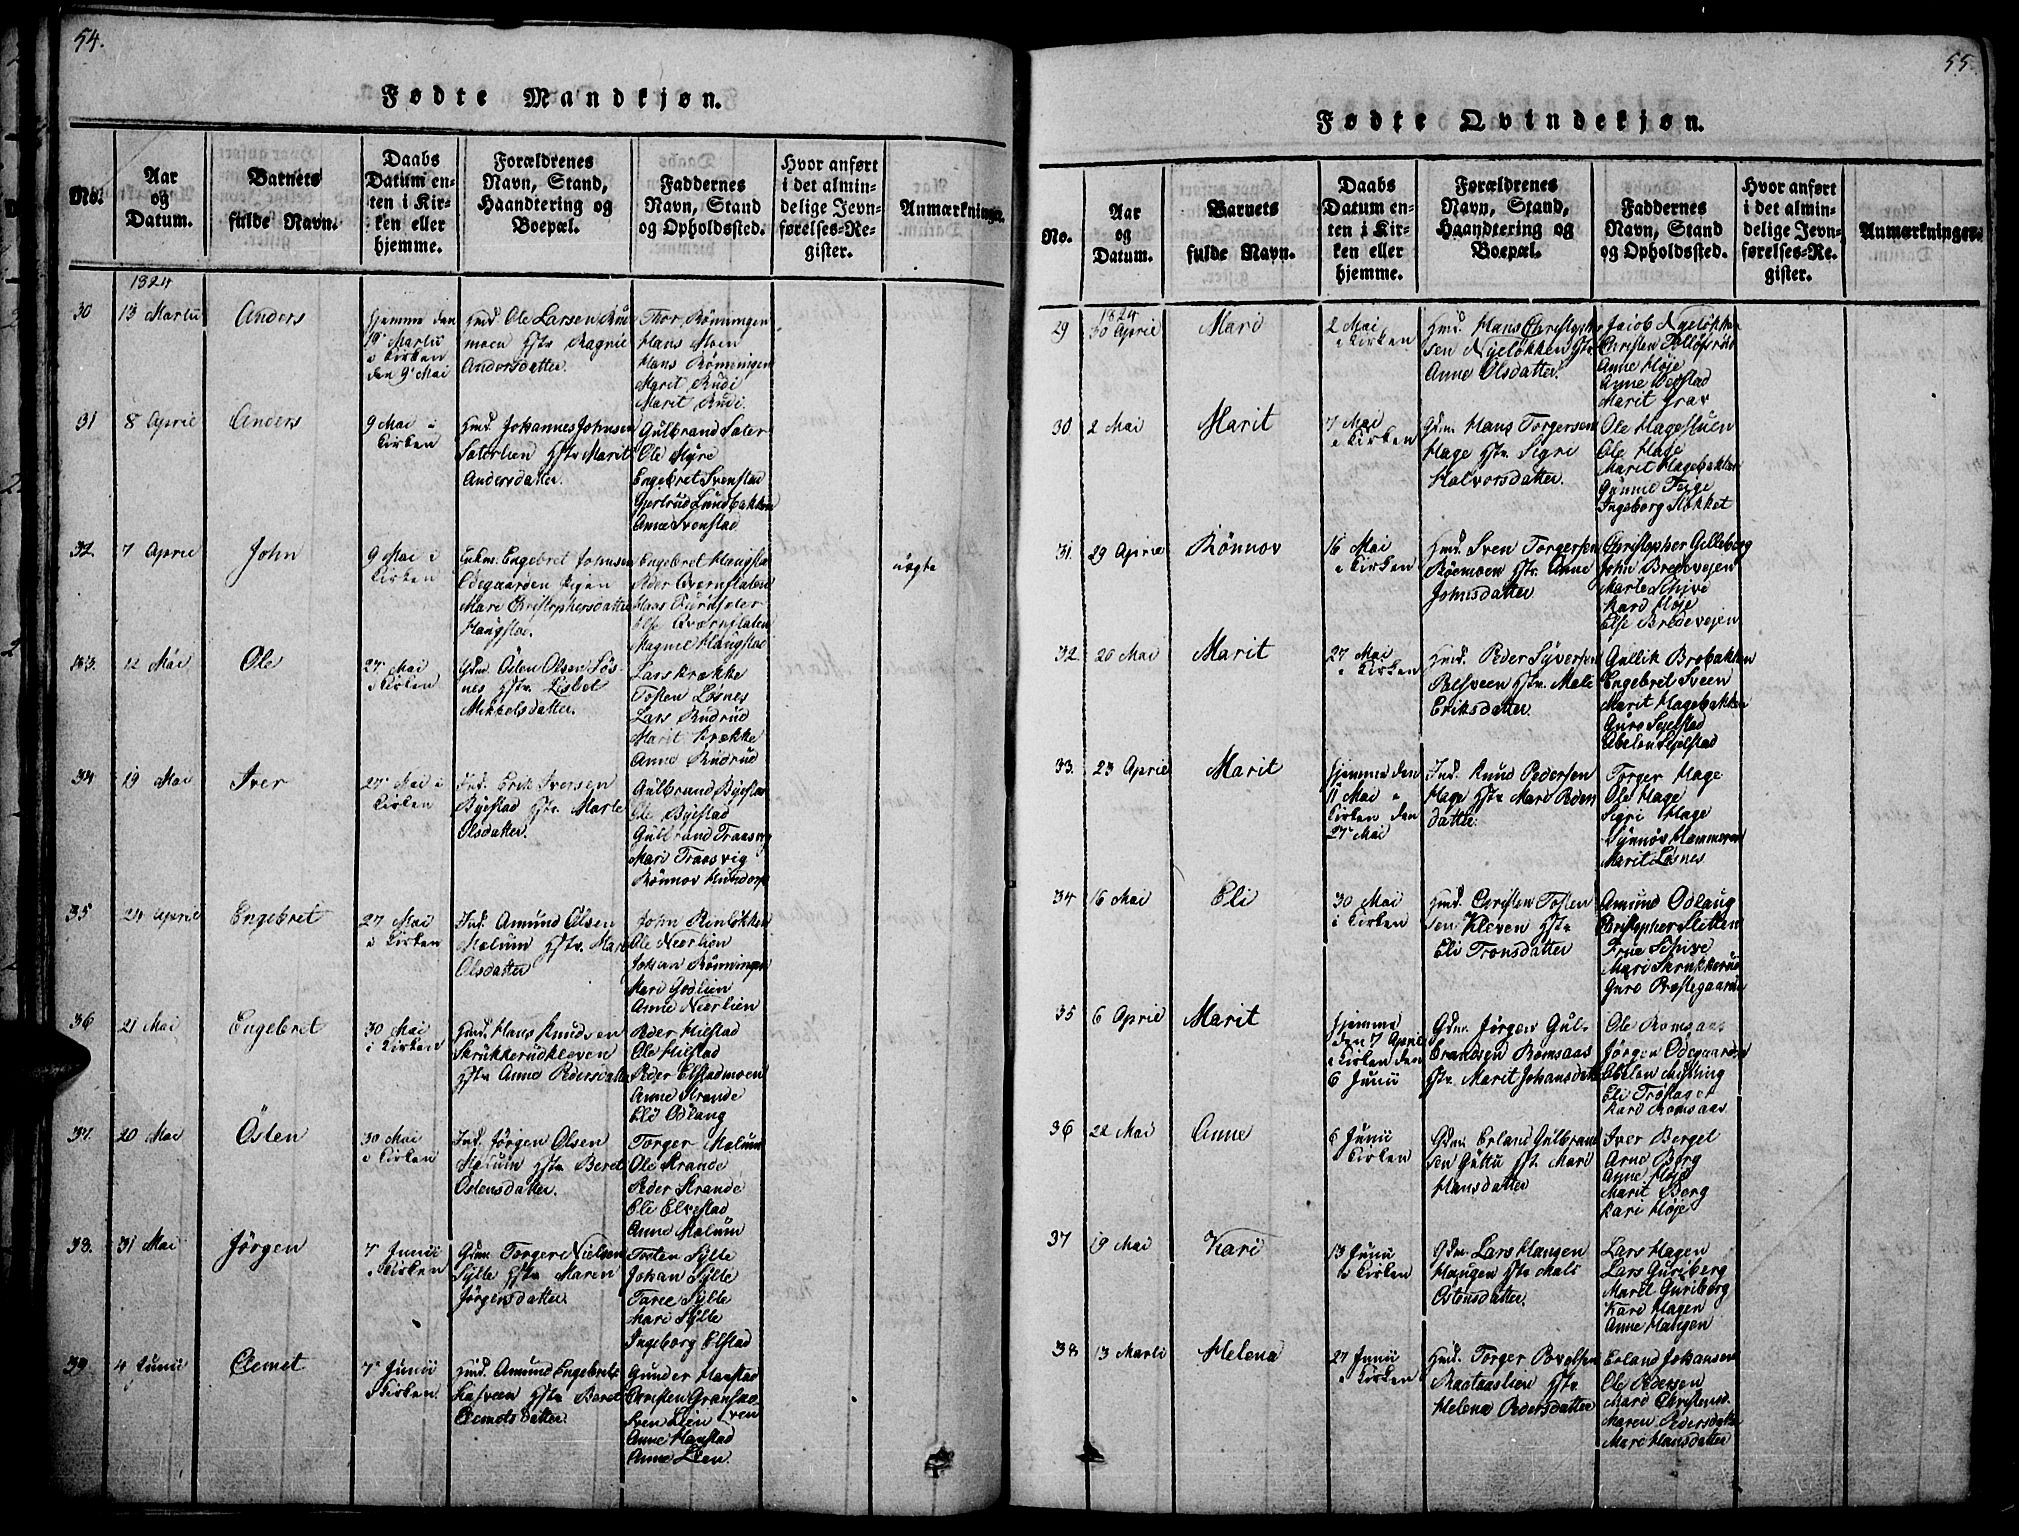 54.
Fødte Mandkjøn.
No.
Aar
og
Datum.
Barnets
fulde Navn.
Daabs
Datum en-
ten i Kir-
ken eller
hjemme.
Forældrenes
Navn, Stand,
Haandtering og
Boepæl.
Faddernes
Navn, Stand
og Opholdssted.
Hvor anført
i det almin-
delige Jevn-
førelses-Re-
gister.
Anmærkninger.
1824
30
13 Martii
Anders
hjemme den
19 Martii
i Kirken
den 9 Mai
Hmd. Ole Larsen
moen Hstr Ragnil
Andersdatter.
Thor Rønningen
Hans Moen
Hans Rønningen
Marit Rudi
Marit Rudi.
31
8 April
Anders
9 Mai i
Kirken
Hmd. Johannes Johnsen
Saterlien Hstr Marit
Andersdatter.
Gulbrand Sater
Ole Myre
Engebret Svenstad
Gjertrud Lundbakken
Anne Svenstad
32
7 April
John
9 Mai i
Kirken
Engebret Johnsen
Odegaarden Pigen
Mari Christophersdatter
Haugstad.
Engebret Haugstad
Peder Qvernstalen
Hans
Else Qvernstalen
Magnil Haugstad
nægte
33.
12 Mai
Ole
27 Mai
i Kirken
Gdm Østen Olsen Løs-
nes Hstr Lisbet
Mikkelsdatter.
Lars Krække
Tosten Løsnes
Lars Rudrud
Marit Krække
Anne Rudrud
34
19 Mai
Iver
27 Mai i
Kirken
Ind. Erik Iversen
Byestad Hstr Marte
Olsdatter.
Gulbrand Byestad
Ole Byestad
Gulbrand Traasvig
Mari Traasvig
Rønnov Hundorp
35
24 April
Engebret
27 Mai
i Kirken
Ind. Amund Olsen
Malum Hstr. Mari
Olsdatter
John Rinløkken
Ole Neerlien
Johan Rønningen
Mari Godlien
Anne Neerlien
36
21 Mai
Engebret
30 Mai
i Kirken
Hmd. Hans Knudsen
Skrukkerudkleven
Hstr Anne Pedersdatter
Peder Hilstad
Ole Hilstad
Peder Elstadmoen
Anne Strande
Eli Odlaug
37.
20 Mai
Østen
30 Mai
i Kirken
Ind. Jørgen Olsen
Malum Hstr Beret
Østensdatter.
Torger Malum
Ole Strande
Peder Strande
Eli Elvestad
Anne Malum
38.
31 Mai
Jørgen
7 Junii
i Kirken
Gdm. Torger Nielsen
Sylte Hstr Maren
Jørgensdatter.
Tosten Sylte
Johan Sylte
Tarie Sylte
Mari Sylte
Ingeborg Elstad
39
4 Junii
Clemet
7 Junii
i Kirken
Hmd. Amund Engebrets-
Hstr Beret
Clemetsdatter
Gunder Haustad
Christen
Sven Lien
Anne Haustad
Anne Lien.
55.
Fødte Qvindekjøn.
No.
Aar
og
Datum.
Barnets
fulde Navn.
Daabs
Datum en-
ten i Kir-
ken eller
hjemme.
Forældrenes
Navn, Stand,
Haandtering og
Boepæl.
Faddernes
Navn, Stand
og Opholdssted.
Hvor anført
i det almin-
delige Jevn-
førelses-Re-
gister.
Anmærkninger.
1824
29
30 April
Mari
2 Mai
i Kirken
Hmd. Hans Christoph-
sen Nyeløkken Hstr
Anne Olsdatter.
Jacob Nyeløkken
Christen
Anne Høje
Anne
Marit Grav
30
2 Mai
Marit
7 Mai
i Kirken
Gdm. Hans Torgersen
Hage Hstr Sigri
Halvorsdatter.
Ole Hagestuen
Ole Hage
Marit Hagebakken
Gunnil Teige
Ingeborg Stokket
31.
29 April
Rønnov
16 Mai
i Kirken
Hmd. Sven Torgersen
Røemoen Hstr. Anne
Johnsdatter
Christopher Gilleberg
John Bredevejen
Marte Schive
Kari Høje
Else Bredevejen
32
20 Mai
Marit
27 Mai
i Kirken
Hmd. Peder Syversen
Hstr. Mali
Eriksdatter.
Gullik Brobakken
Engebret Sveen
Marit Hagebakken
Guro Sejelstad
Abelon Sejelstad
33.
23 April
Marit
hjemme den
11 Mai i
Kirken den
27 Mai
Ind. Knud Pedersen
Hage Hstr Mari
datter.
Torger Hage
Ole Hage
Sigri Hage
Synnøv Hammeren
Marit Løsnes
34
16 Mai
Eli
30 Mai
i Kirken
Hmd. Christen Tosten-
sen Kleven Hstr
Eli Tronsdatter
Amund Odlaug
Christopher Sletten
Schive
Mari Skrukkerud
Guro Prestegaarden
35
6 April
Marit
hjemme
den 7 April
i Kirken den
6 Junii
Gdm. Jørgen Gul-
brandsen Romsaas
Hstr. Marit Johansdatter
Ole Romsaas
Jørgen Odegaarden
Abelon Mylling
Eli
Kari Romsaas
36
22 Mai
Anne
6 Junii
i Kirken
Gdm. Erland Gulbrand-
sen Guttu Hstr Mari
Hansdatter
Iver Bergel
Arne Berg
Anne Høje
Marit Berg
Kari Høje
37
19 Mai
Kari
13 Junii
i Kirken
Gdm. Lars Haugen
Haugen Hstr Mali
Østensdatter.
Lars Hagen
Lars Guriberg
Marit Guriberg
Kari Hagen
Anne Haugen
38
13 Martii
Helena
27 Junii
i Kirken
Hmd. Torger
Hstr.
Helena Pedersdatter
Erland Johansen
Ole Pedersen
Mari Christensd.
Maren Pedersdatter
Mari Hansdatter